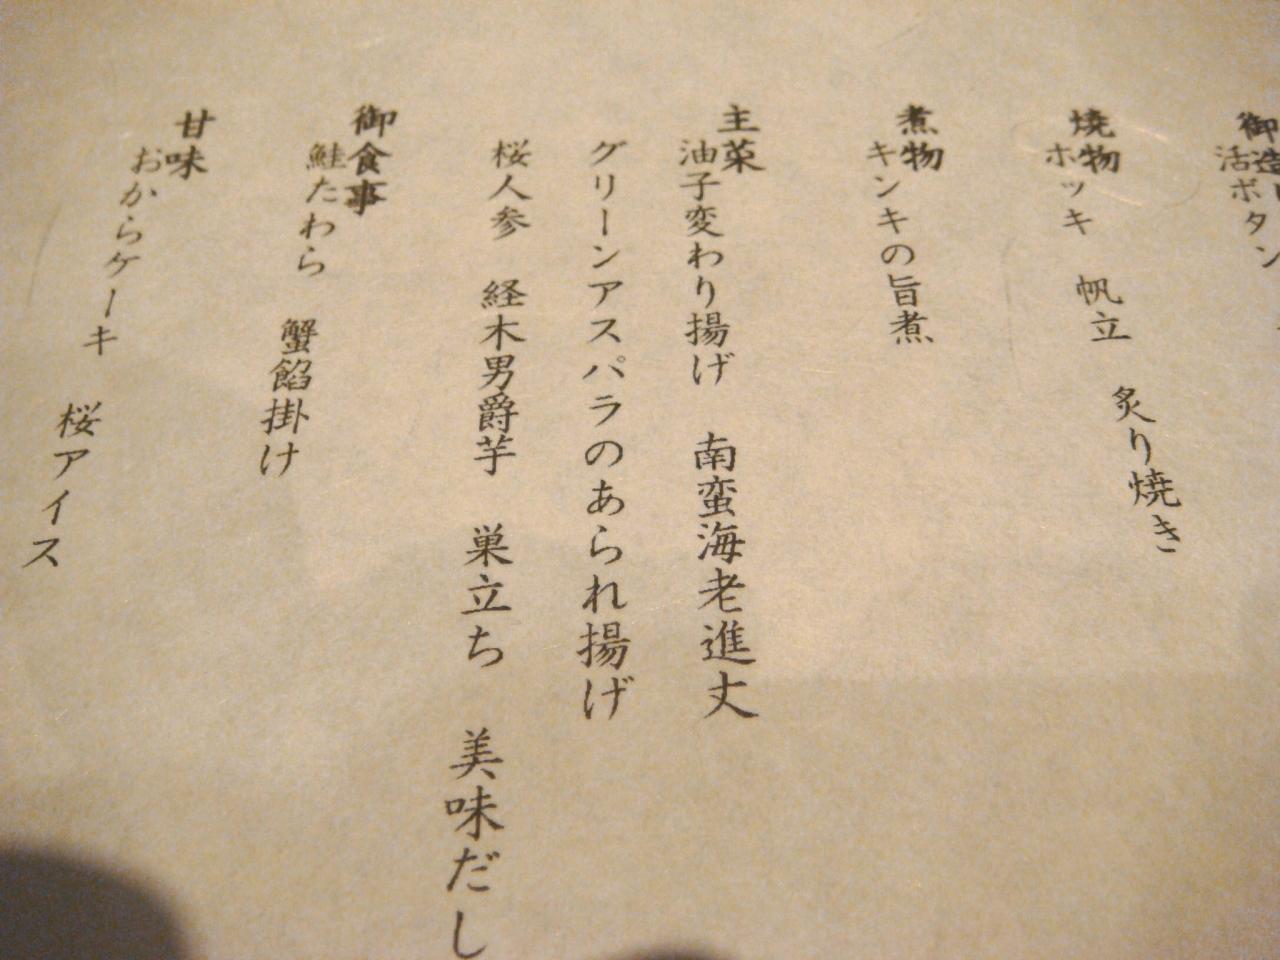 御造り
活ボタン
焼物
ホッキ 帆立 炙り焼き
煮物
キンキの旨煮
主菜
油子変わり揚げ 南蛮海老進丈
グリーンアスパラのあられ揚げ
桜人参 経木男爵芋 巣立ち 美味だし
御食事
鮭たわら 蟹餡掛け
甘味
おからケーキ 桜アイス